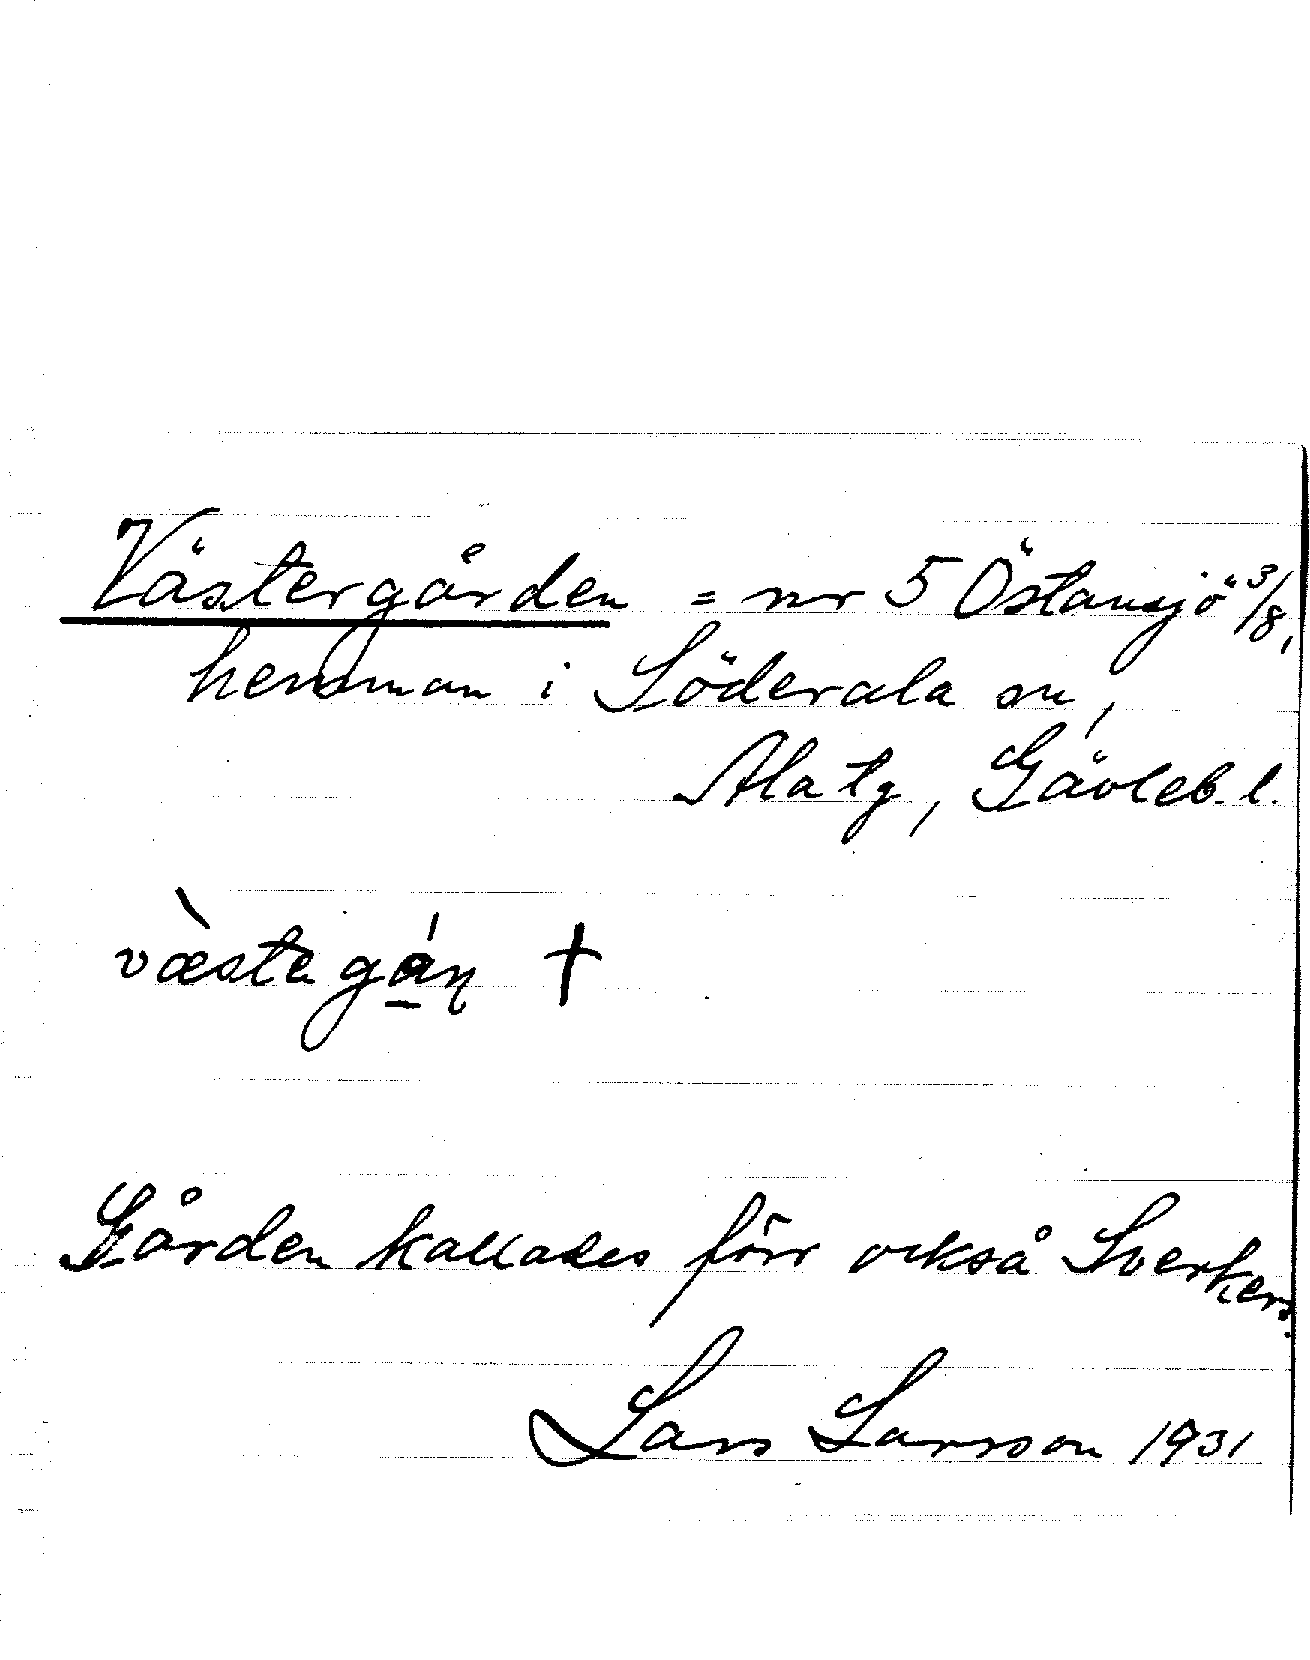 Västergården = nr 5 Östansjö 3/8,
hemman i Söderala sn,
Ala tg, Gävleb. l.
væ̀stagá̱ɳ †
Gården kallades förr också Sverkers.
Lars Larsson 1931